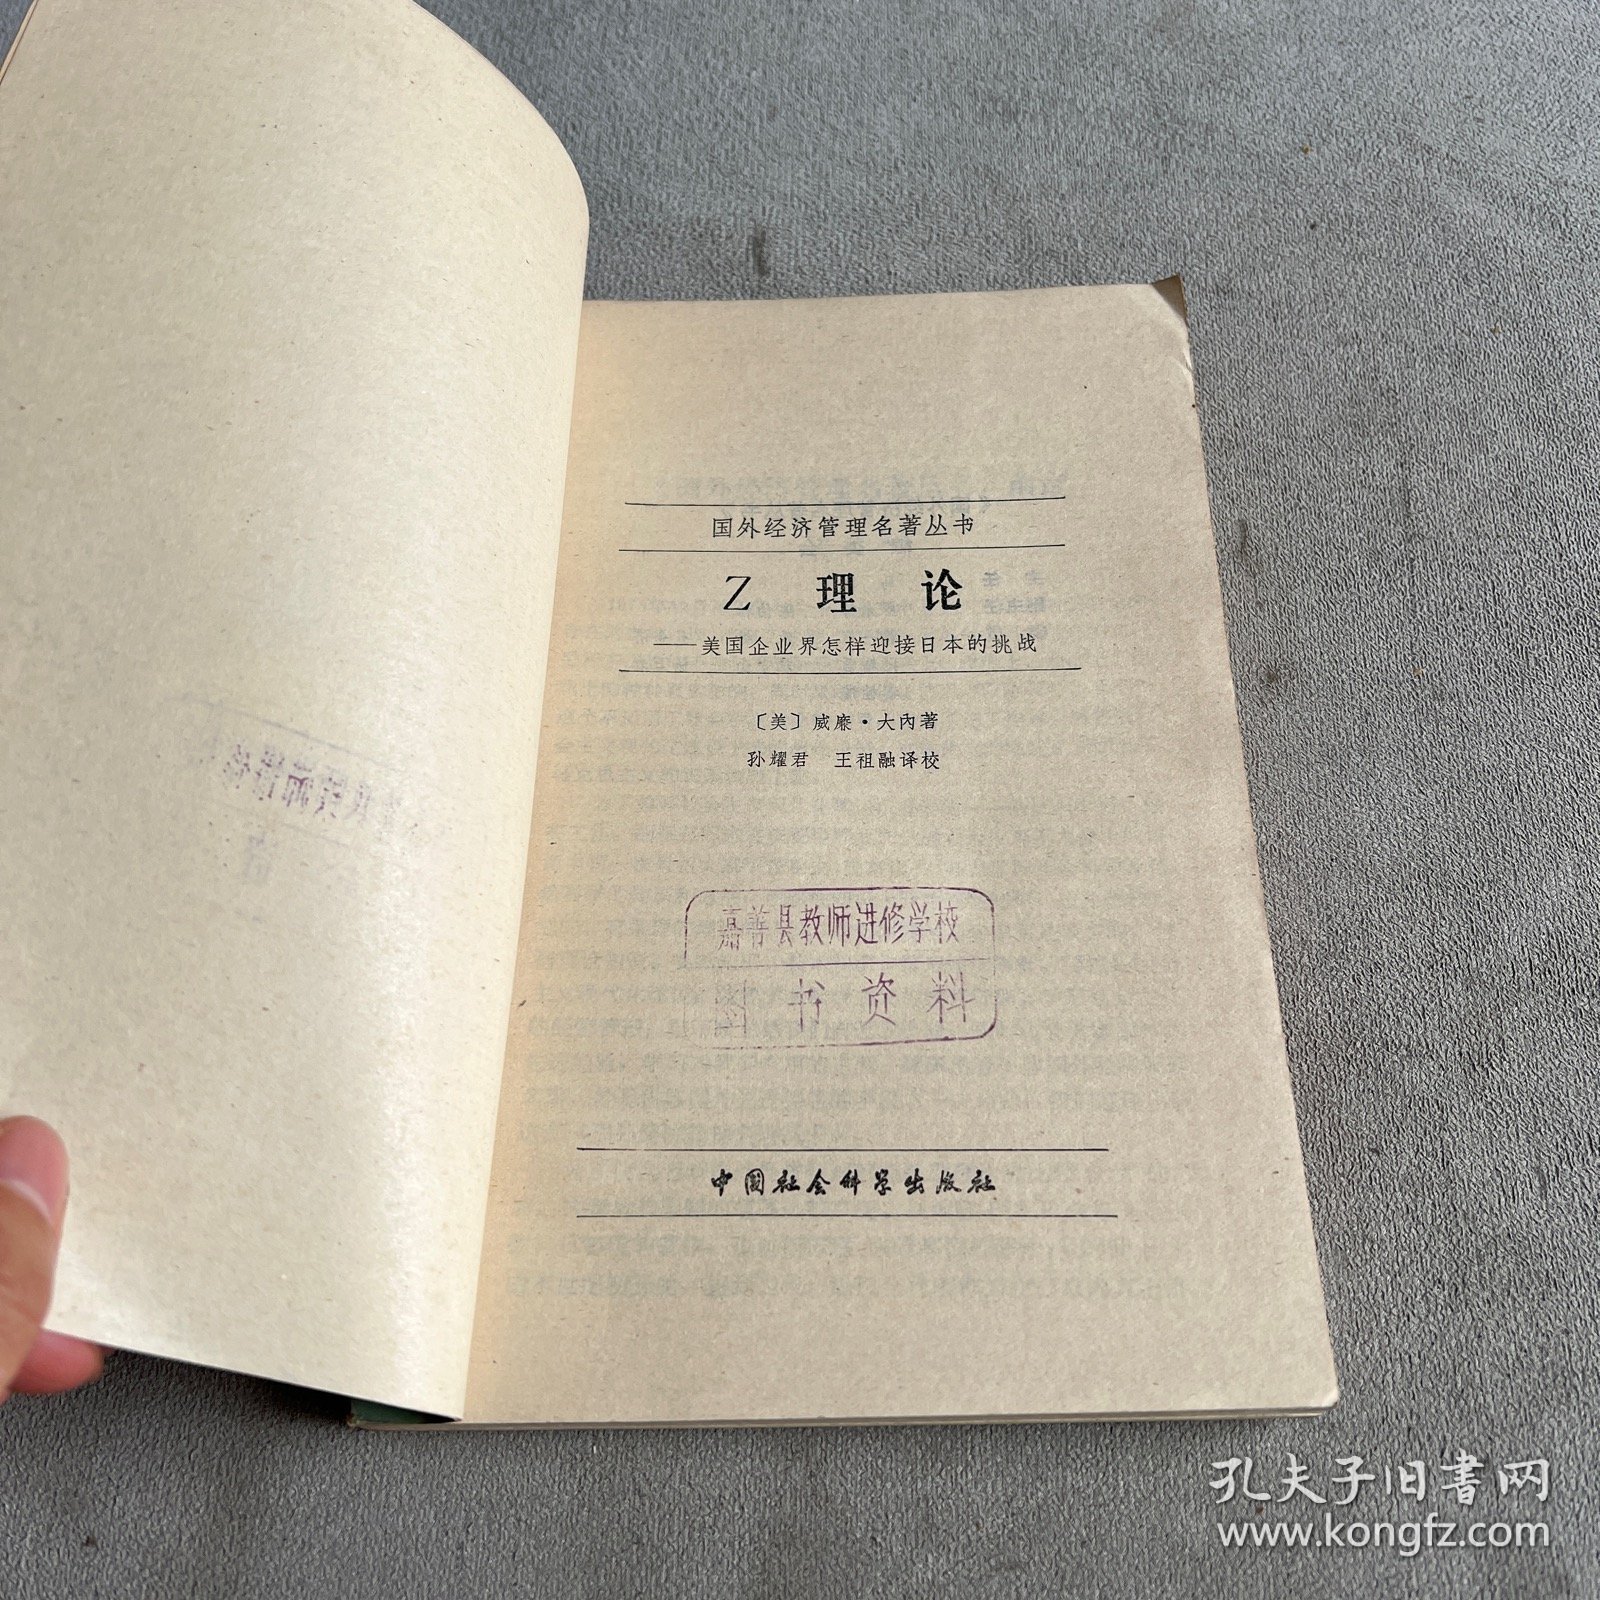 国外经济管理名著丛书
Z 理 论
——美国企业界怎样迎接日本的挑战
〔美〕威廉·大内著
孙耀君 王祖融译校
嘉善县教师进修学校
图书资料
中国社会科学出版社
孔夫子旧书网
www.kongfz.com